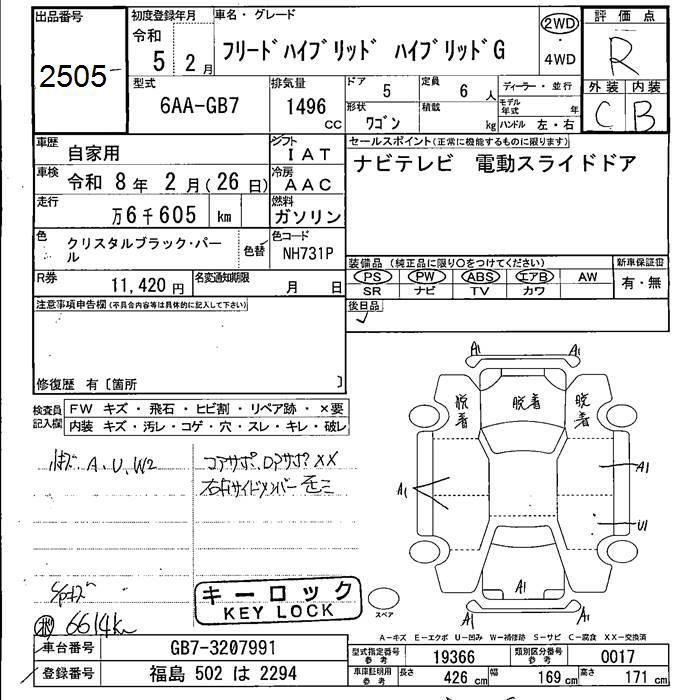 出品番号
2505
初度登録年月
令和
5 2月
車名・グレード
フリードハイブリッド ハイブリッドG
2WD
・
4WD
評価点
R
外装 内装
C B
型式
6AA-GB7
排気量
1496
CC
ドア
5
定員
6 人
形状
ワゴン
積載
kg
ディーラー・並行
モデル年式 年
ハンドル 左・右
車歴
自家用
シフト
IAT
車検
令和 8年 2月(26日)
冷房
AAC
走行
万6千605 km
燃料
ガソリン
色
クリスタルブラック・パール
色替
色コード
NH731P
R券
11,420円
名変通知期限
月 日
セールスポイント(正常に機能するものに限ります)
ナビテレビ 電動スライドドア
装備品(純正品に限り○をつけてください)
PS PW ABS エアB AW
SR ナビ TV カワ
新車保証書
有・無
後日品
注意事項申告欄(不具合内容等は具体的に記入して下さい)
修復歴 有〔箇所 〕
検査員記入欄
FW キズ・飛石・ヒビ割・リペア跡・×要
内装 キズ・汚レ・コゲ・穴・スレ・キレ・破レ
A、U、W2
コアサポ、ロアサポ××
右サイドメンバー
6614km
キーロック
KEY LOCK
A1 A1
脱着 脱着 脱着
A1
A1
U1
A1
A1 A1
スペア
A-キズ E-エクボ U-凹み W-補修跡 S-サビ C-腐食 XX-交換済
車台番号
GB7-3207991
登録番号
福島 502 は 2294
型式指定番号 参考
19366
類別区分番号 参考
0017
車庫証明用 参考
長さ 426 cm 幅 169 cm 高さ 171 cm